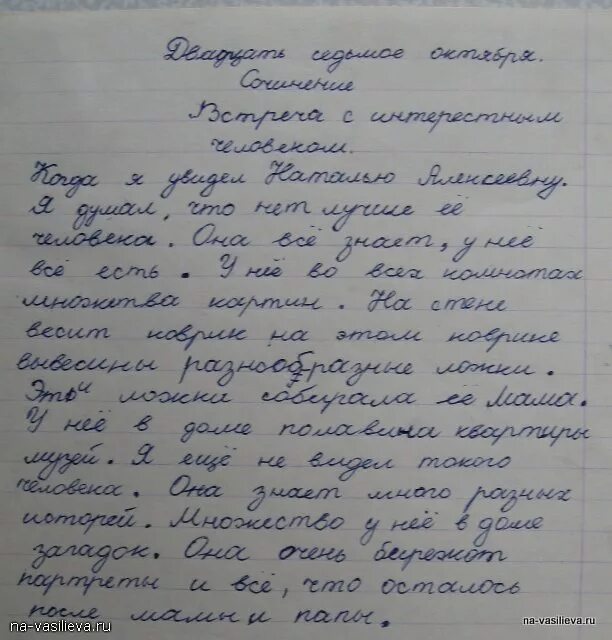 Двадцать седьмое октября.
Сочинение
Встреча с интерестным
человеком.
Когда я увидел Наталью Алексеевну.
Я думал, что нет лучше её
человека. Она всё знает, у неё
всё есть. У неё во всех комнотах
множетва картин. На стене
весит коврик на этом коврике
вывесины разнообразные ложки.
Эти ложки собирала её мама.
У неё в доме полавина квартиры
музей. Я ещё не видел токого
человека. Она знает много разных
историй. Множество у неё в доме
загадок. Она очень бережот
партреты и всё, что осталось
после мамы и папы.
na-vasilieva.ru
na-vasilieva.ru